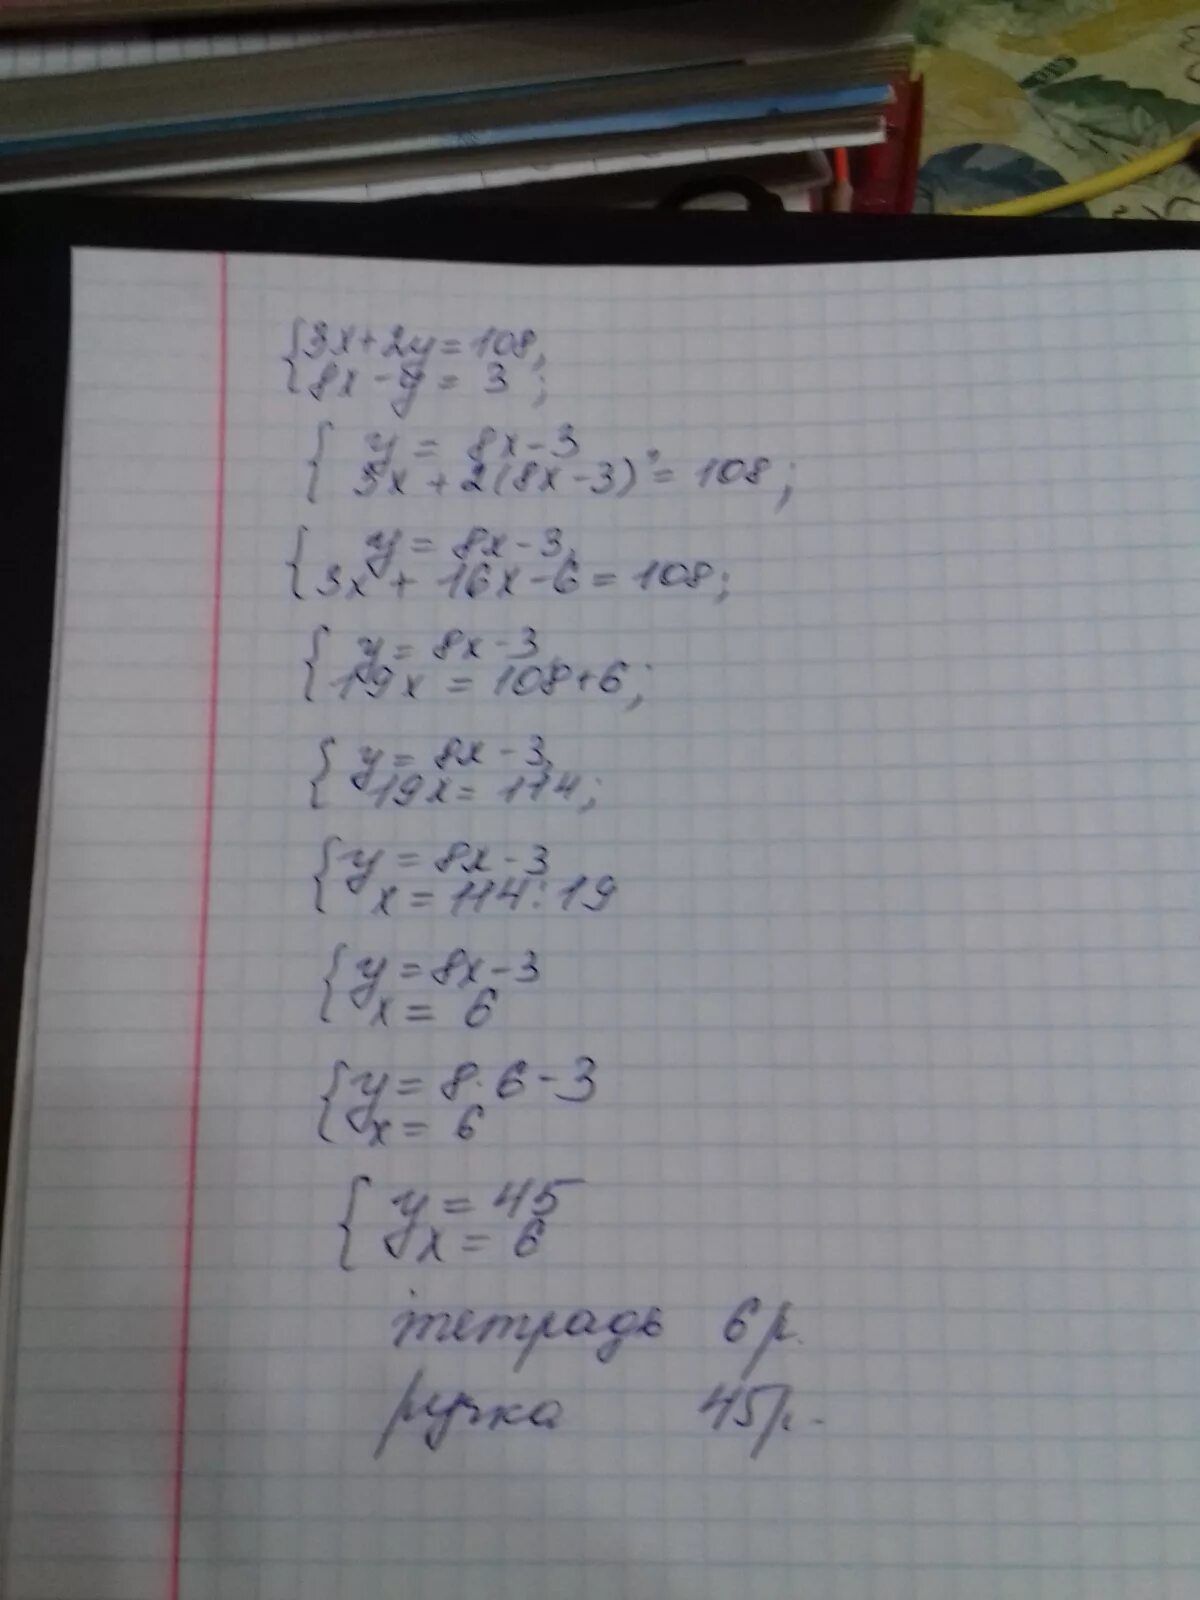 {3x+2y=108,
8x-y=3;
{y=8x-3
3x+2(8x-3)=108;
{y=8x-3,
3x+16x-6=108;
{y=8x-3
19x=108+6;
{y=8x-3,
19x=114;
{y=8x-3
x=114:19
{y=8x-3
x=6
{y=8·6-3
x=6
{y=45
x=6
тетрадь 6р.
ручка 45р.